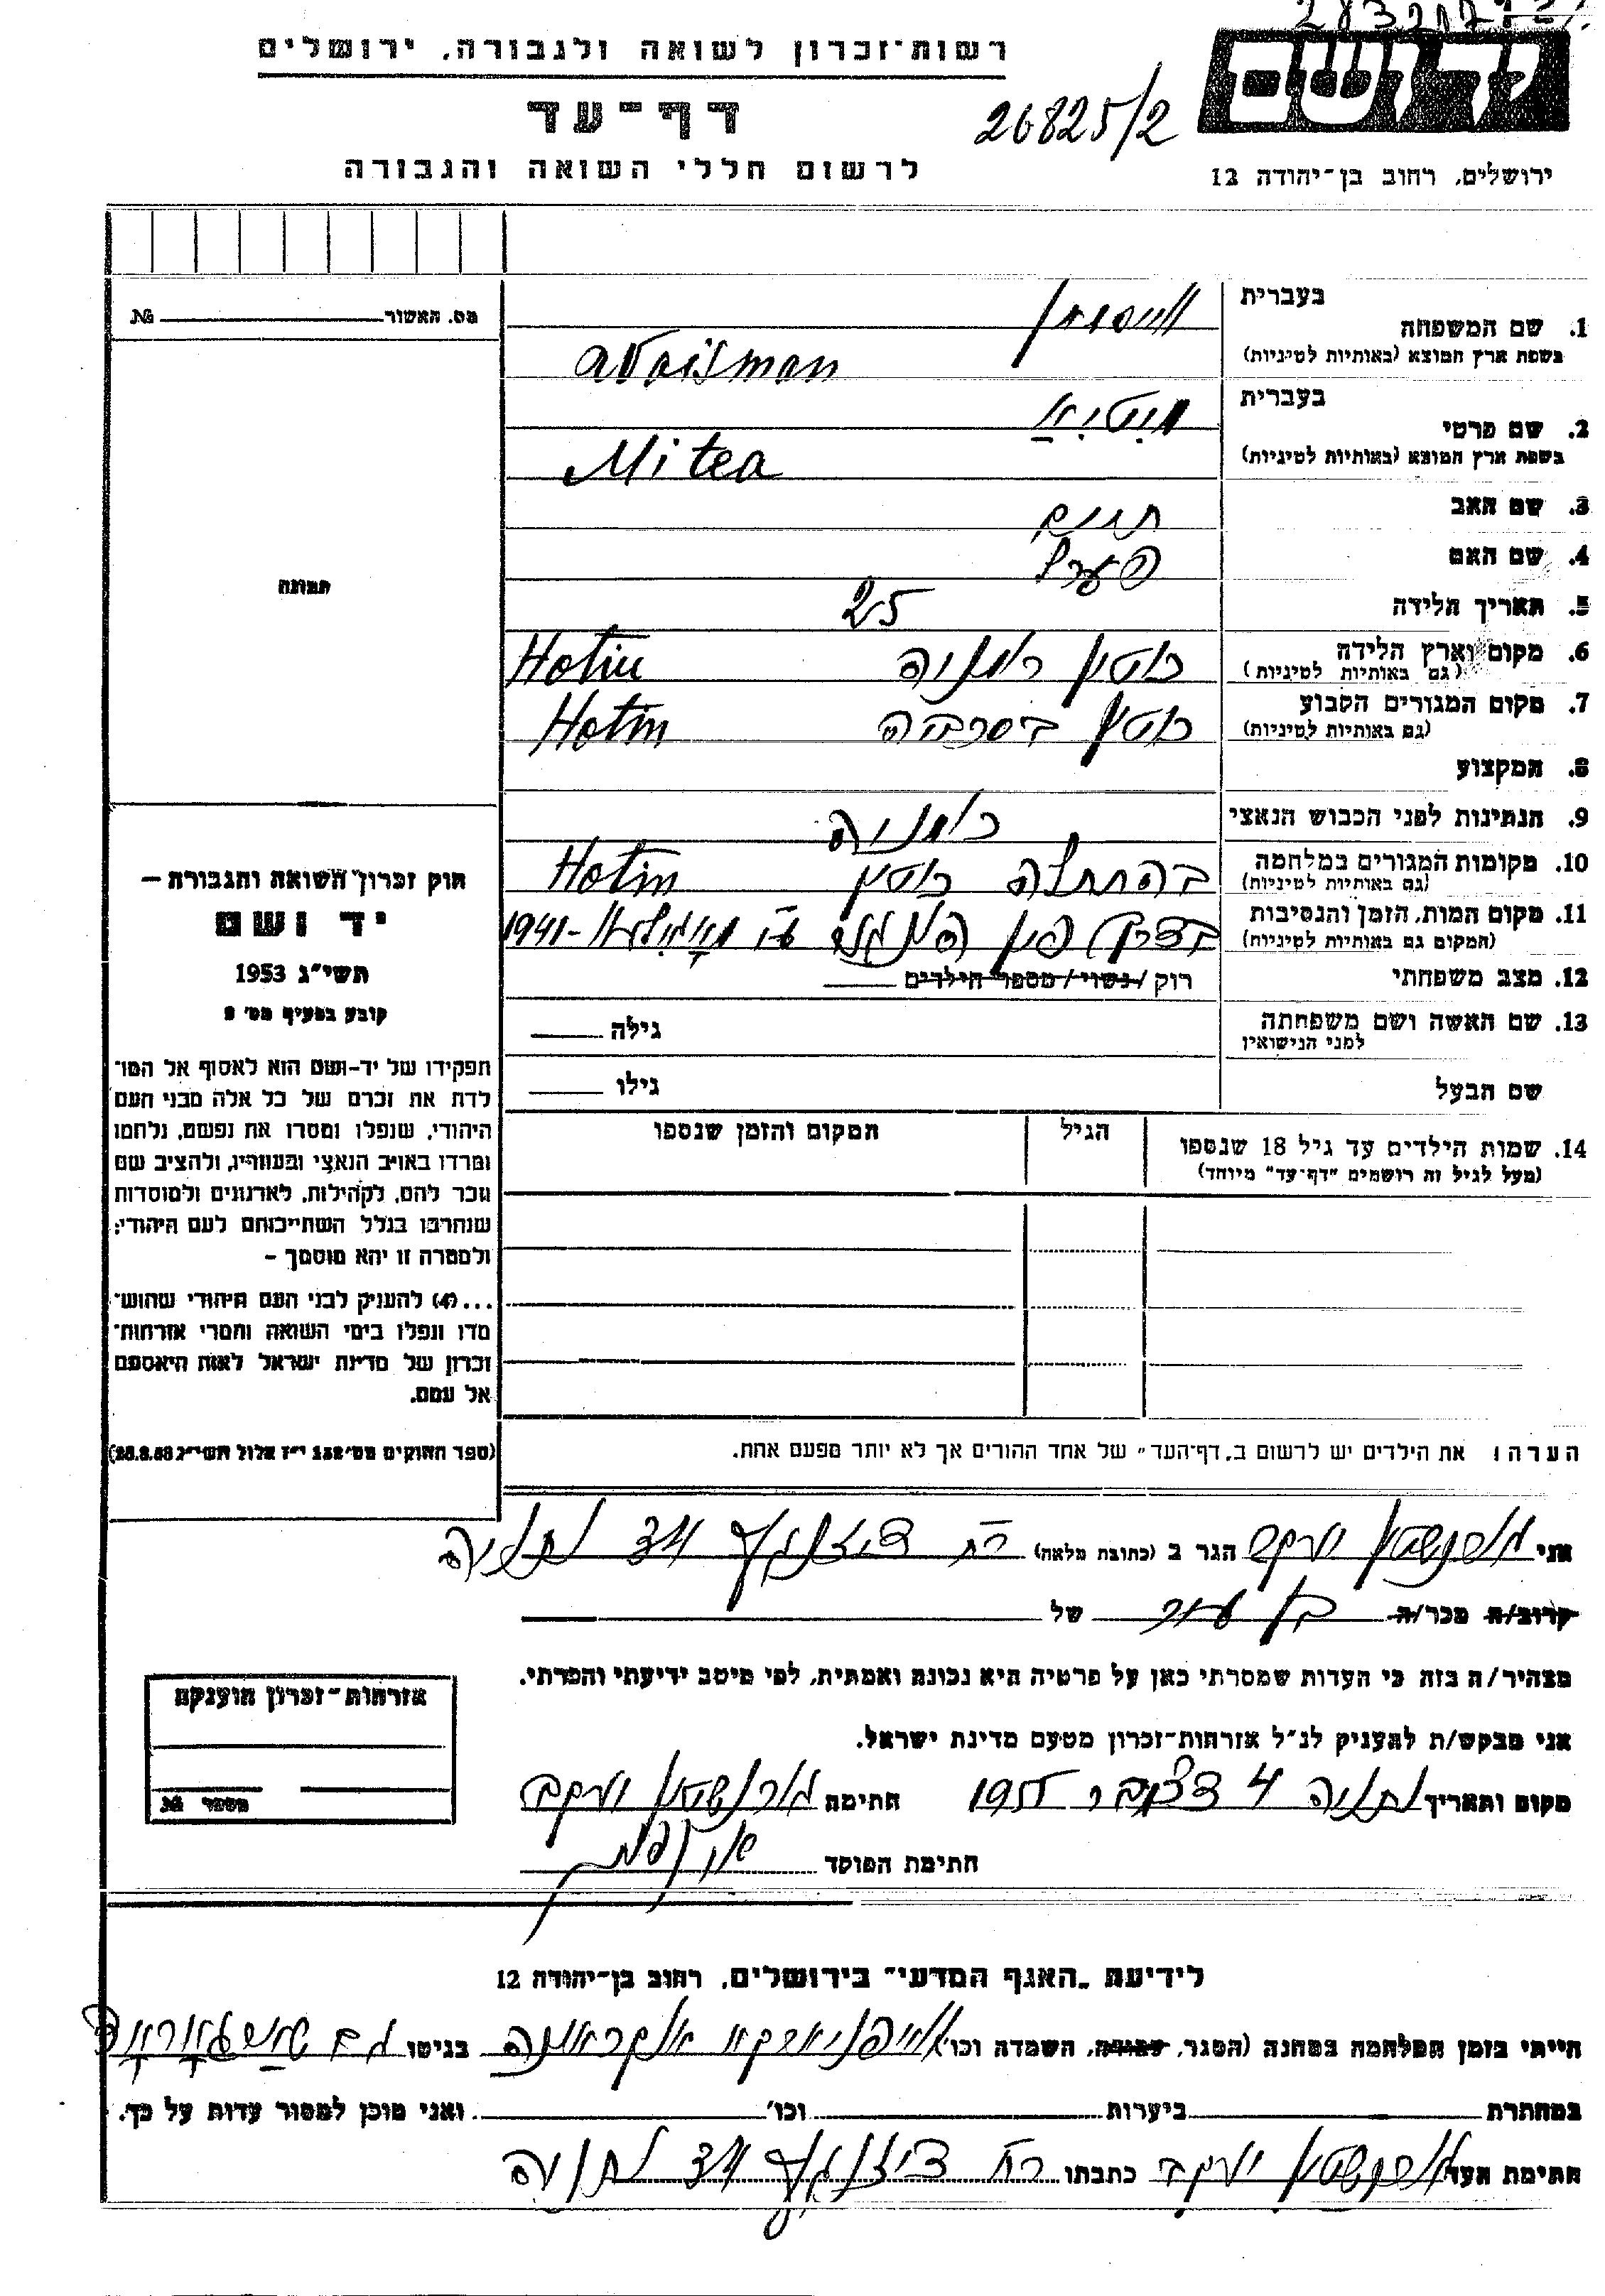 רשות־זכרון לשואה ולגבורה, ירושלים
דף־עד
26825/2
לרשום חללי השואה והגבורה
ירושלים, רחוב בן־יהודה 12
מס. האשור №
תמונה
חוק זכרון השואה והגבורה —
יד ושם
תשי״ג 1953
קובע בסעיף מס׳ 2
תפקידו של יד-ושם הוא לאסוף אל המו־
לדת את זכרם של כל אלה מבני העם
היהודי, שנפלו ומסרו את נפשם, נלחמו
ומרדו באויב הנאצי ובעוזריו, ולהציב שם
וזכר להם, לקהילות, לארגונים ולמוסדות
שנחרבו בגלל השתייכותם לעם היהודי;
ולמטרה זו יהא מוסמך —
...(4) להעניק לבני העם היהודי שהוש־
מדו ונפלו בימי השואה והמרי אזרחות־
זכרון של מדינת ישראל לאות היאספם
אל עמם.
(ספר החוקים מס׳ 132 י״ז אלול תשי״ג 28.8.53)
בעברית
1. שם המשפחה
בשפת ארץ המוצא (באותיות לטיניות) Waisman
בעברית מיטיא
2. שם פרטי
בשפת ארץ המוצא (באותיות לטיניות) Mitea
3. שם האב חיים
4. שם האם פערל
5. תאריך הלידה 25
6. מקום וארץ הלידה חוטין רומניה Hotin
(גם באותיות לטיניות)
7. מקום המגורים הקבוע חוטין בסרביה Hotin
(גם באותיות לטיניות)
8. המקצוע
9. הנתינות לפני הכבוש הנאצי רומניה
10. מקומות המגורים במלחמה בהתחלה חוטין Hotin
(גם באותיות לטיניות)
11. מקום המות, הזמן והנסיבות בדרך 1941
(המקום גם באותיות לטיניות)
12. מצב משפחתי רוק / נשוי / מספר הילדים
13. שם האשה ושם משפחתה גילה
לפני הנישואין
שם הבעל גילו
14. שמות הילדים עד גיל 18 שנספו הגיל המקום והזמן שנספו
(מעל לגיל זה רושמים "דף־עד" מיוחד)
הערה: את הילדים יש לרשום ב„דף־העד״ של אחד ההורים אך לא יותר מפעם אחת.
אני יעקב הגר ב (כתובת מלאה) רח דיזנגוף 34 נתניה
קרוב/ה מכר/ה בן עיר של
מצהיר/ה בזה כי העדות שמסרתי כאן על פרטיה היא נכונה ואמתית, לפי מיטב ידיעתי והכרתי.
אני מבקש/ת להעניק לנ״ל אזרחות-זכרון מטעם מדינת ישראל.
מקום ותאריך נתניה 4 דצמבר 1955 חתימה יעקב
חתימת הפוקד
אזרחות־זכרון הוענקה
מספר №
לידיעת „האגף המדעי״ בירושלים, רחוב בן־יהודה 12
הייתי בזמן המלחמה במחנה (הסגר, עבודה, השמדה וכו׳) אוקראינה בגיטו גם
במחתרת ביערות וכו׳ ואני מוכן למסור עדות על כך.
חתימת העד יעקב כתבתו רח דיזנגוף 34 נתניה